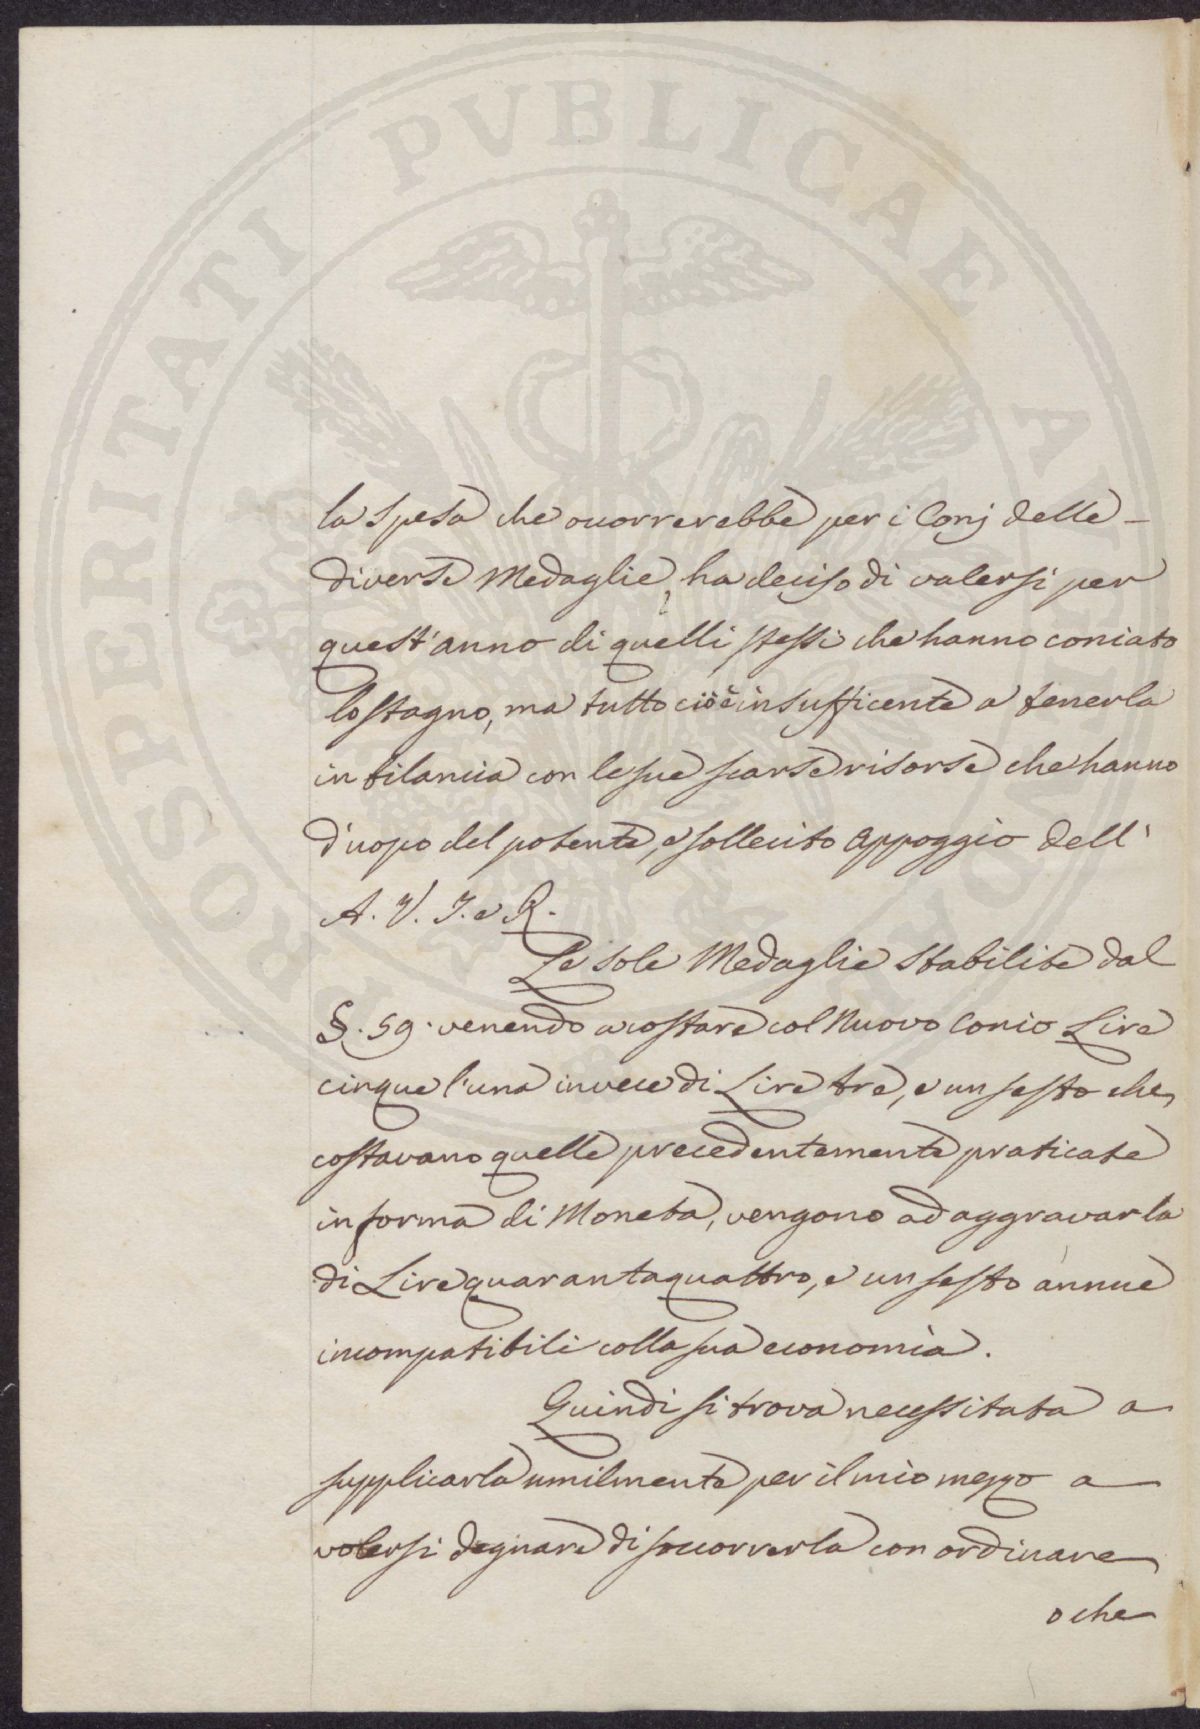 PROSPERITATI PVBLICAE AVGENDAE
la spesa che ocorrerebbe per i Conj delle -
diverse Medaglie, ha deciso di valersi per
quest'anno di quelli stessi che hanno coniato
lo stagno, ma tutto ciò è insufficente a tenerla
in bilancia con le sue scarse risorse che hanno
d'uopo del potente, e sollecito appoggio dell'
A. V. I. e R.
Le sole Medaglie stabilite dal
§. 59. venendo a costare col Nuovo Conio Lire
cinque l'una invece di Lire tre, e un sesto che
costavano quelle precedentemente praticate
in forma di Moneta, vengono ad aggravarla
di Lire quarantaquattro, e un sesto annue
incompatibili colla sua economia.
Quindi si trova necessitata a
supplicarla umilmente per il mio mezzo a
volersi degnare di soccorrerla con ordinare
o che